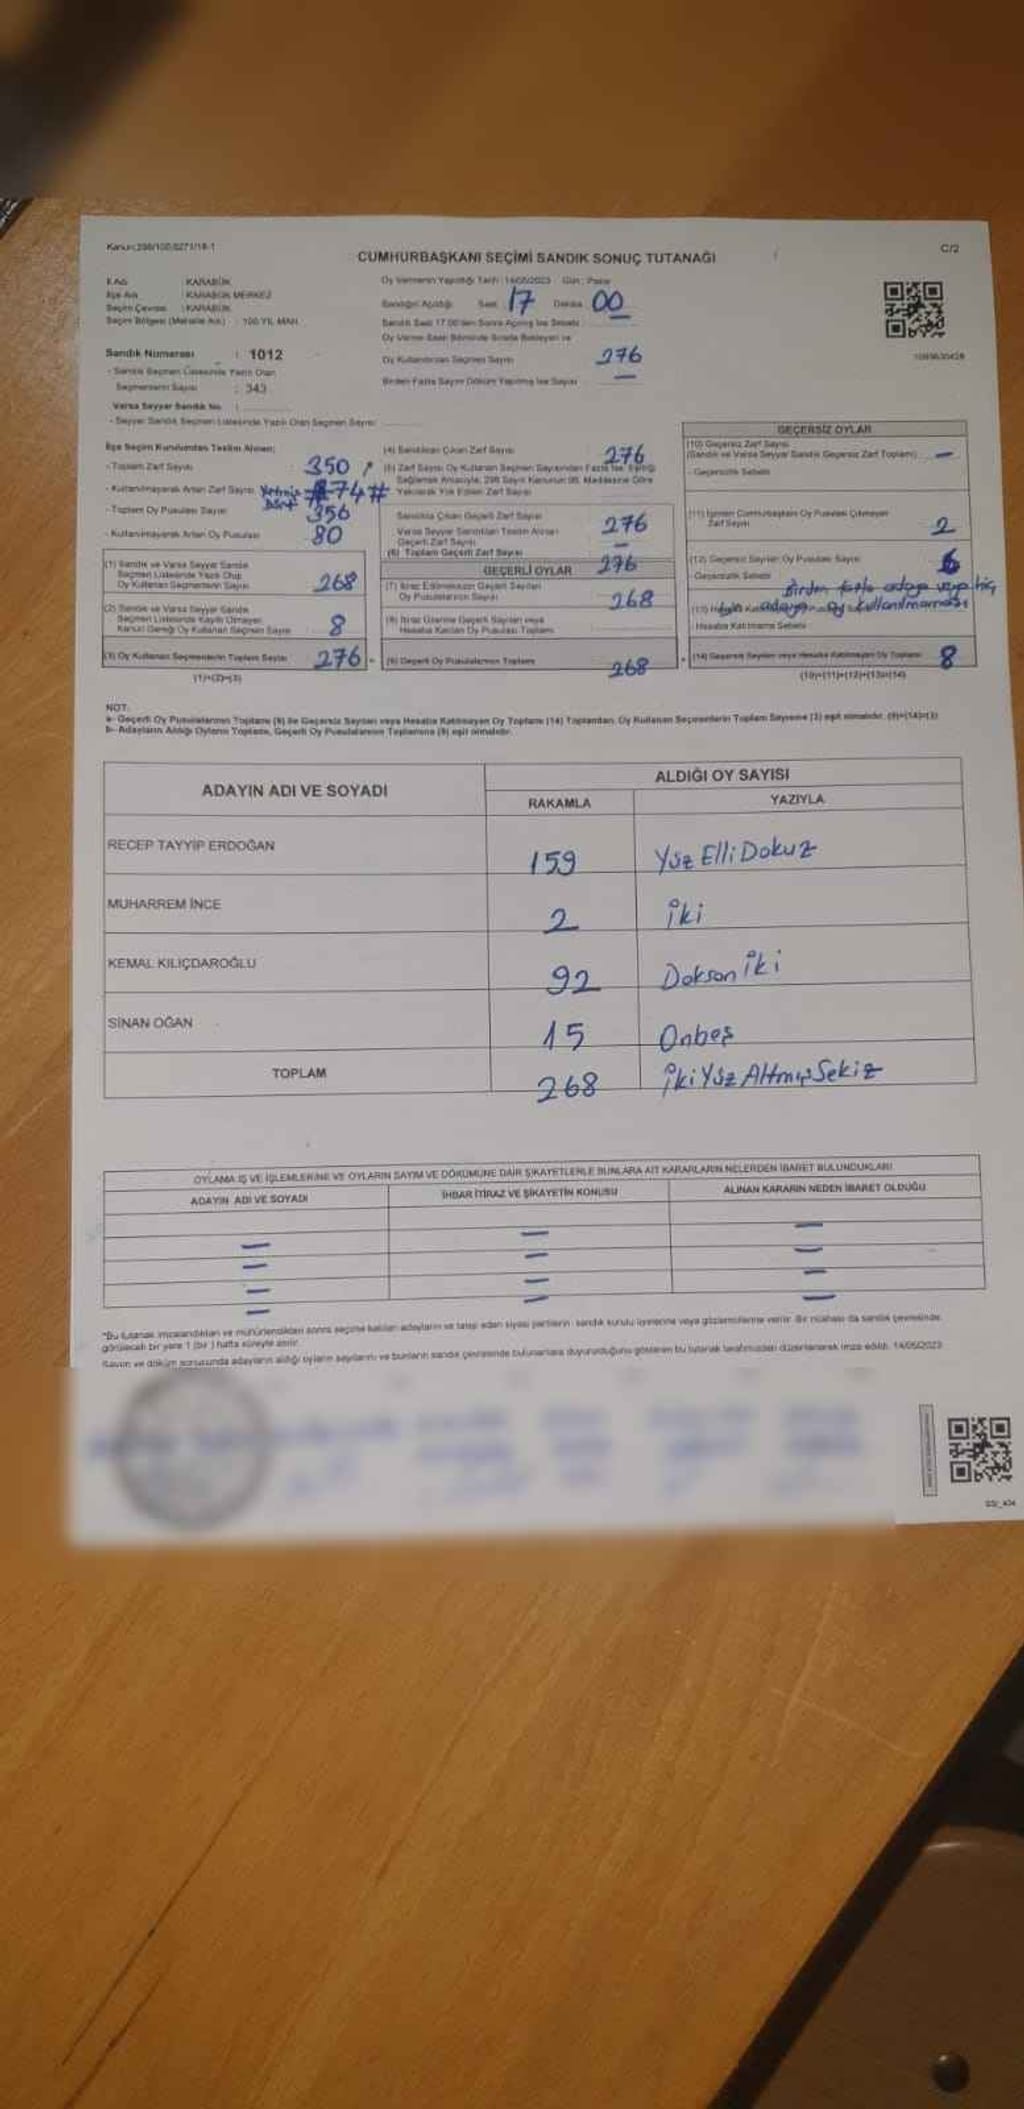 Kanun:298/100,6271/18-1
C/2
CUMHURBAŞKANI SEÇİMİ SANDIK SONUÇ TUTANAĞI
İl Adı : KARABÜK
İlçe Adı : KARABÜK MERKEZ
Seçim Çevresi : KARABÜK
Seçim Bölgesi (Mahalle Adı) : 100.YIL MAH.
Sandık Numarası : 1012
- Sandık Seçmen Listesinde Yazılı Olan
Seçmenlerin Sayısı : 343
Varsa Seyyar Sandık No :
- Seyyar Sandık Seçmen Listesinde Yazılı Olan Seçmen Sayısı:
Oy Vermenin Yapıldığı Tarih : 14/05/2023 Gün : Pazar
Sandığın Açıldığı Saat : 17 Dakika : 00
Sandık Saat 17.00'den Sonra Açılmış İse Sebebi —
Oy Verme Saati Bitiminde Sırada Bekleyen ve
Oy Kullandırılan Seçmen Sayısı 276
Birden Fazla Sayım Döküm Yapılmış İse Sayısı —
İlçe Seçim Kurulundan Teslim Alınan;
- Toplam Zarf Sayısı 350
- Kullanılmayarak Artan Zarf Sayısı Yetmiş Dört #74#
- Toplam Oy Pusulası Sayısı 356
- Kullanılmayarak Artan Oy Pusulası 80
(1) Sandık ve Varsa Seyyar Sandık
Seçmen Listesinde Yazılı Olup
Oy Kullanan Seçmenlerin Sayısı 268
(2) Sandık ve Varsa Seyyar Sandık
Seçmen Listesinde Kayıtlı Olmayan
Kanun Gereği Oy Kullanan Seçmen Sayısı 8
(3) Oy Kullanan Seçmenlerin Toplam Sayısı 276
(1)+(2)=(3)
(4) Sandıktan Çıkan Zarf Sayısı 276
(5) Zarf Sayısı Oy Kullanan Seçmen Sayısından Fazla İse, Eşitliği
Sağlamak Amacıyla, 298 Sayılı Kanunun 98. Maddesine Göre
Yakılarak Yok Edilen Zarf Sayısı
Sandıkta Çıkan Geçerli Zarf Sayısı 276
Varsa Seyyar Sandıktan Teslim Alınan
Geçerli Zarf Sayısı —
(6) Toplam Geçerli Zarf Sayısı 276
GEÇERLİ OYLAR
(7) İtiraz Edilmeksizin Geçerli Sayılan
Oy Pusulalarının Sayısı 268
(8) İtiraz Üzerine Geçerli Sayılan veya
Hesaba Katılan Oy Pusulası Toplamı
(9) Geçerli Oy Pusulalarının Toplamı 268
GEÇERSİZ OYLAR
(10) Geçersiz Zarf Sayısı
(Sandık ve Varsa Seyyar Sandık Geçersiz Zarf Toplamı) —
- Geçersizlik Sebebi
(11) İçinden Cumhurbaşkanı Oy Pusulası Çıkmayan
Zarf Sayısı 2
(12) Geçersiz Sayılan Oy Pusulası Sayısı 6
- Geçersizlik Sebebi Birden fazla adaya veya hiç
adaya oy kullanılmaması
Hesaba Katılmama Sebebi
(14) Geçersiz Sayılan veya Hesaba Katılmayan Oy Toplamı 8
(10)+(11)+(12)+(13)=(14)
NOT:
a- Geçerli Oy Pusulalarının Toplamı (9) ile Geçersiz Sayılan veya Hesaba Katılmayan Oy Toplamı (14) Toplamları, Oy Kullanan Seçmenlerin Toplam Sayısına (3) eşit olmalıdır. (9)+(14)=(3)
b- Adayların Aldığı Oyların Toplamı, Geçerli Oy Pusulalarının Toplamına (9) eşit olmalıdır.
ADAYIN ADI VE SOYADI
ALDIĞI OY SAYISI
RAKAMLA YAZIYLA
RECEP TAYYİP ERDOĞAN 159 Yüz Elli Dokuz
MUHARREM İNCE 2 İki
KEMAL KILIÇDAROĞLU 92 Doksan İki
SİNAN OĞAN 15 Onbeş
TOPLAM 268 İki Yüz Altmış Sekiz
OYLAMA İŞ VE İŞLEMLERİNE VE OYLARIN SAYIM VE DÖKÜMÜNE DAİR ŞİKAYETLERLE BUNLARA AİT KARARLARIN NELERDEN İBARET BULUNDUKLARI
ADAYIN ADI VE SOYADI İHBAR İTİRAZ VE ŞİKAYETİN KONUSU ALINAN KARARIN NEDEN İBARET OLDUĞU
— — —
— — —
— — —
— — —
*Bu tutanak imzalandıktan ve mühürlendikten sonra seçime katılan adayların ve talep eden siyasi partilerin sandık kurulu üyelerine veya gözlemcilerine verilir. Bir nüshası da sandık çevresinde
görülecek bir yere 1 (bir) hafta süreyle asılır.
Sayım ve döküm sonucunda adayların aldığı oyların sayılarını ve bunların sandık çevresinde bulunanlara duyurulduğunu gösteren bu tutanak tarafımızdan düzenlenerek imza edildi. 14/05/2023